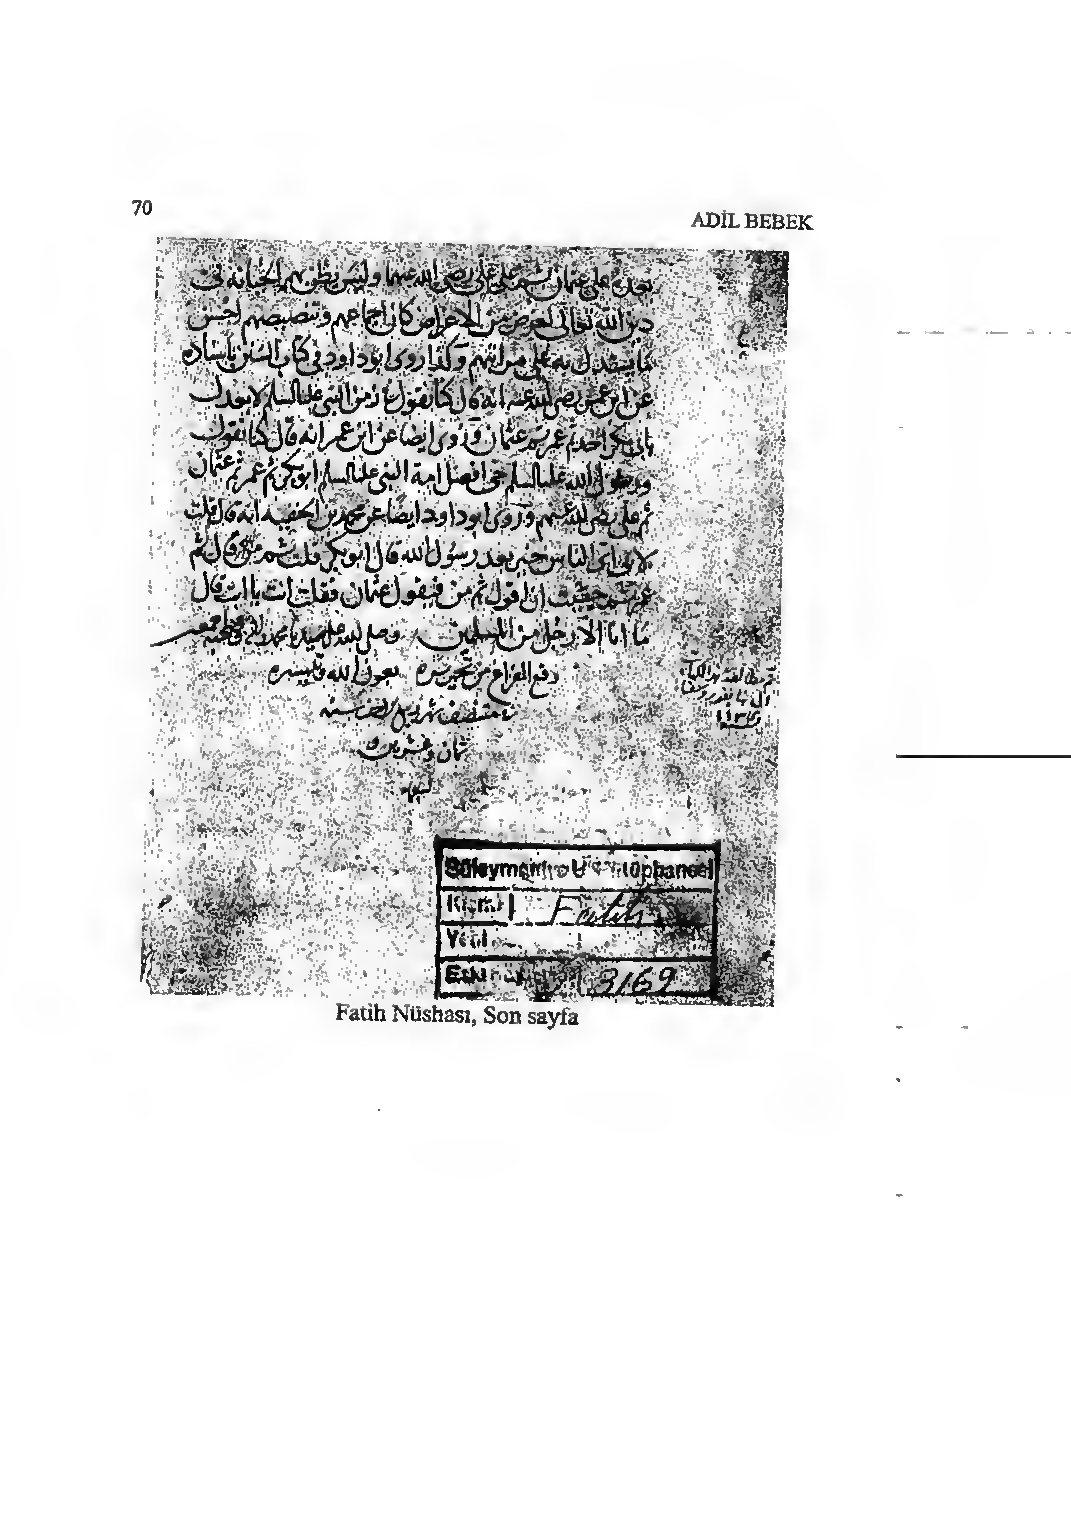 70
ADİL BEBEK
بعده على عثمان ثم على على رضى الله عنهما وليس يظن بهم الخيانة فى
دين الله تعالى لغرض من الاغراض كان اجماعهم وتنصيصهم احسن
ما يستدل به على مراتبهم وكذا روى ابو داود فى كتاب السنن باسناده
عن ابن عمر رضى الله عنه انه قال كنا نقول فى زمن النبى عليه السلم لا نعدل
بابى بكر احدا ثم عمر ثم عثمان وروى ايضا عن ابن عمر انه قال كنا نقول
ورسول الله عليه السلم حى افضل امة النبى عليه السلم ابو بكر ثم عمر ثم عثمان
ثم على رضى الله عنهم وروى ابو داود ايضا عن محمد بن الحنفية انه قال قلت
لابى اى الناس خير بعد رسول الله قال ابو بكر قلت ثم من قال ثم
عمر ثم خشيت ان اقول ثم من فيقول عثمان فقلت ثم انت يا ابت قال
ما انا الا رجل من المسلمين وصلى الله على سيدنا محمد واله
وقع الفراغ من تحريره بعون الله وتيسيره
ثمان وعشرين
Süleymaniye U Kütüphanesi
Kısmı Fatih
Yeni
Eski 3169
Fatih Nüshası, Son sayfa